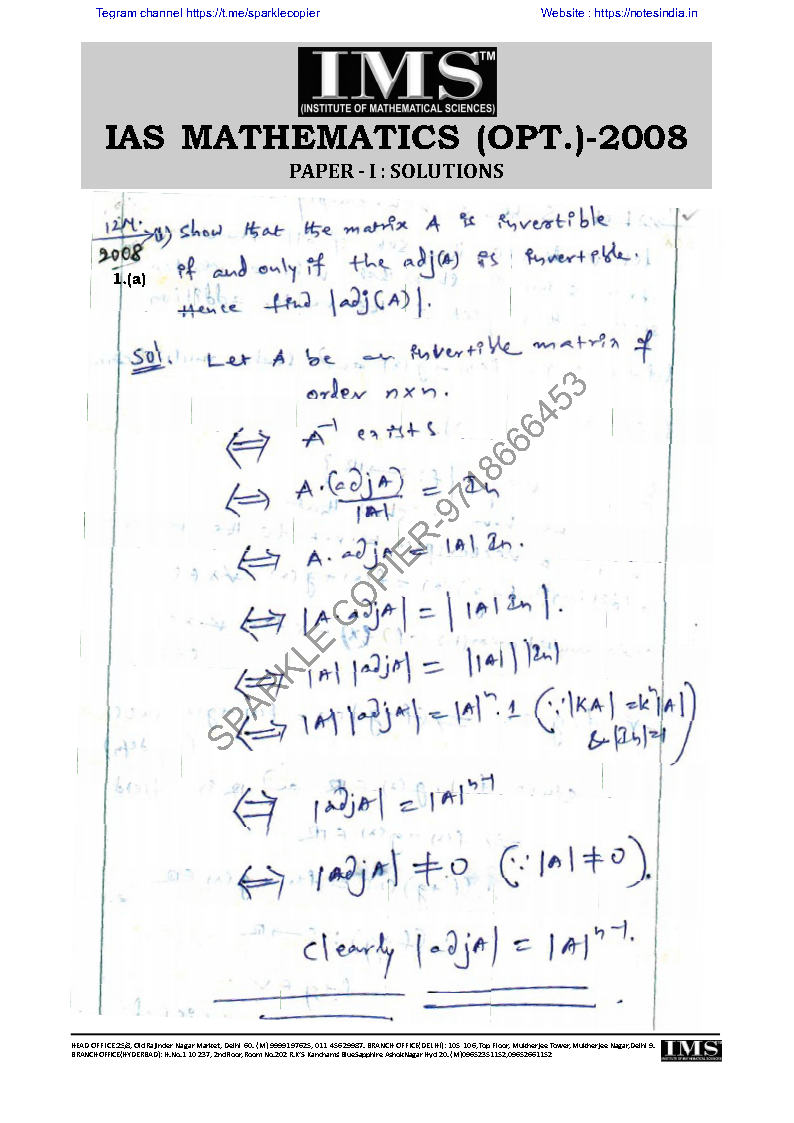 Tegram channel https://t.me/sparklecopier
Website : https://notesindia.in
IMS™
(INSTITUTE OF MATHEMATICAL SCIENCES)
IAS MATHEMATICS (OPT.)-2008
PAPER - I : SOLUTIONS
12M.
2008
1.(a)
Show that the matrix A is invertible
if and only if the adj(A) is invertible.
Hence find |adj(A)|.
Sol. Let A be an invertible matrix of
order n×n.
⟺ A⁻¹ exists
⟺ A·(adjA)/|A| = In
⟺ A·adjA = |A| In.
⟺ |A·adjA| = ||A| In|.
⟺ |A| |adjA| = ||A|| |In|
⟺ |A| |adjA| = |A|ⁿ·1 (∵|KA| = kⁿ|A|
& |In|=1)
⟺ |adjA| = |A|ⁿ⁻¹
⟺ |AdjA| ≠ 0 (∵|A| ≠ 0).
Clearly |adjA| = |A|ⁿ⁻¹.
SPARKLE COPIER-9718666453
HEAD OFFICE:25/8, Old Rajinder Nagar Market, Delhi 60. (M) 9999197625, 011 45629987. BRANCH OFFICE(DELHI): 105 106,Top Floor, Mukherjee Tower, Mukherjee Nagar,Delhi 9.
BRANCH OFFICE(HYDERBAD): H.No.1 10 237, 2nd Floor, Room No.202 R.K'S Kanchams BlueSapphire AshokNagar Hyd 20. (M)09652351152,09652661152
IMS™
INSTITUTE OF MATHEMATICAL SCIENCES